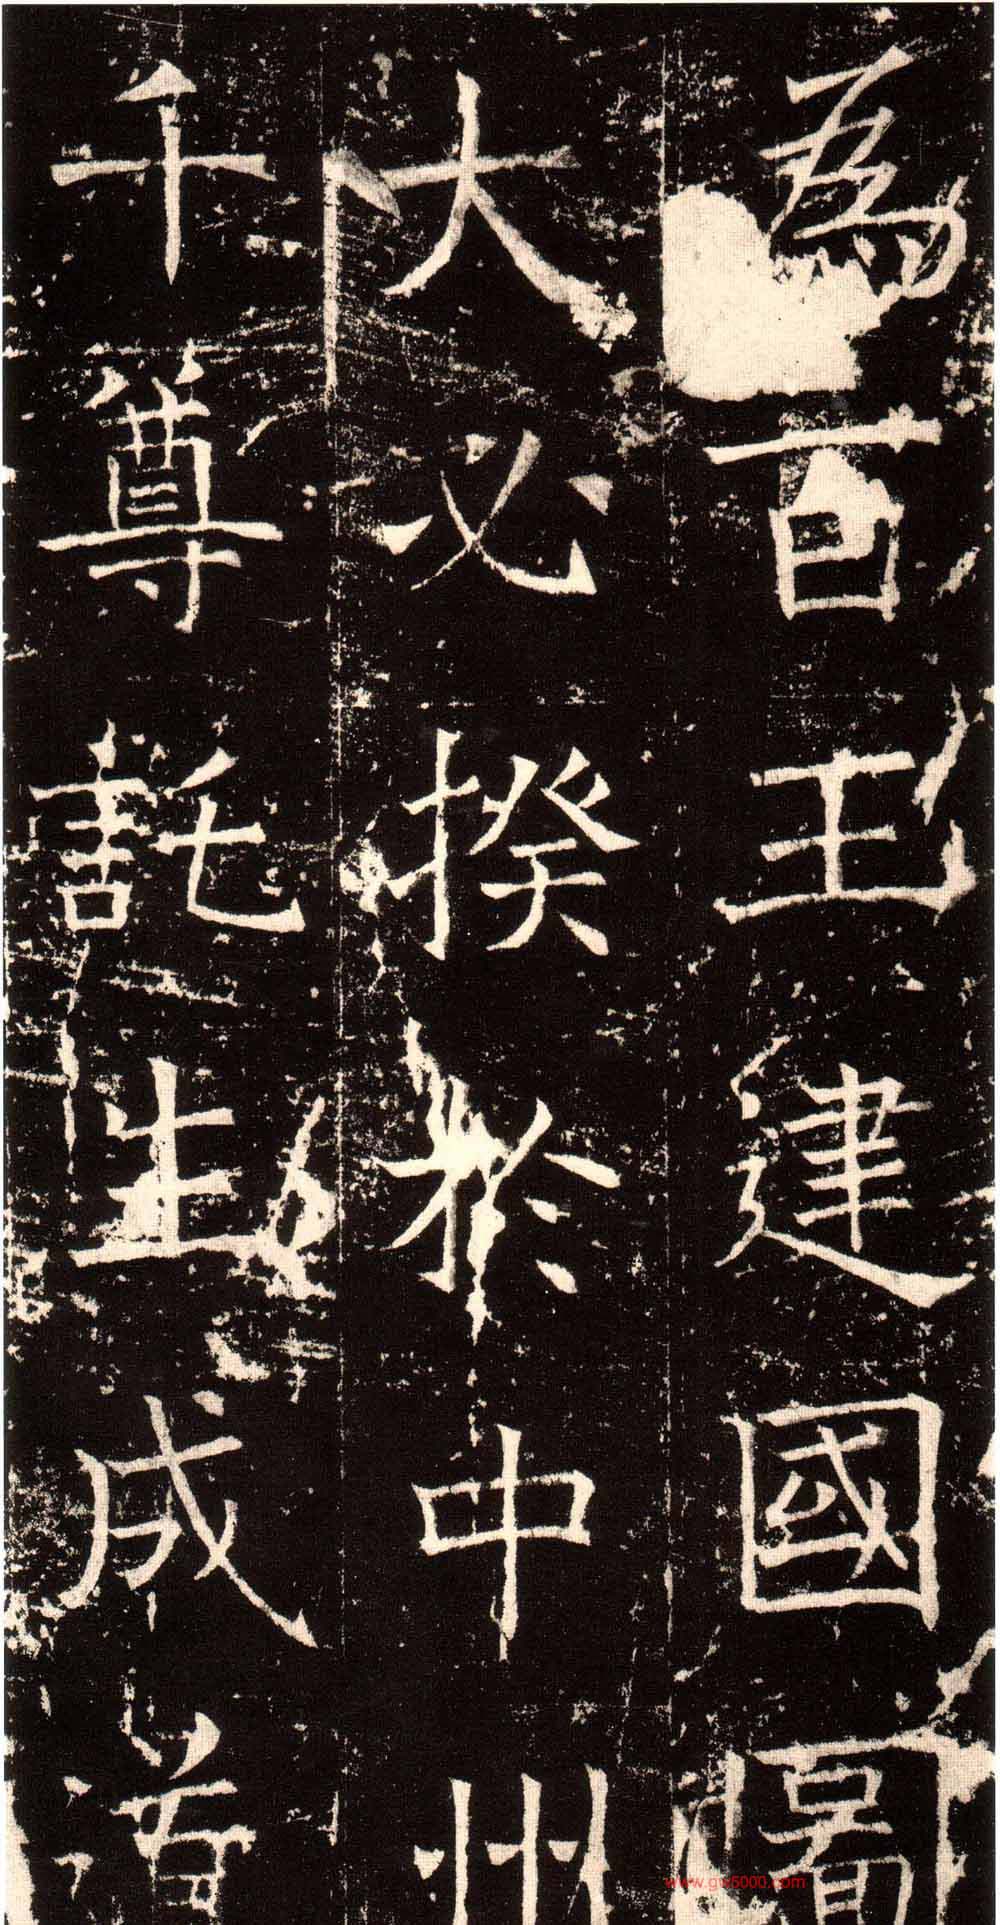 為百王建國圖
大必揆於中州
千尊託生成道
www.gw5000.com